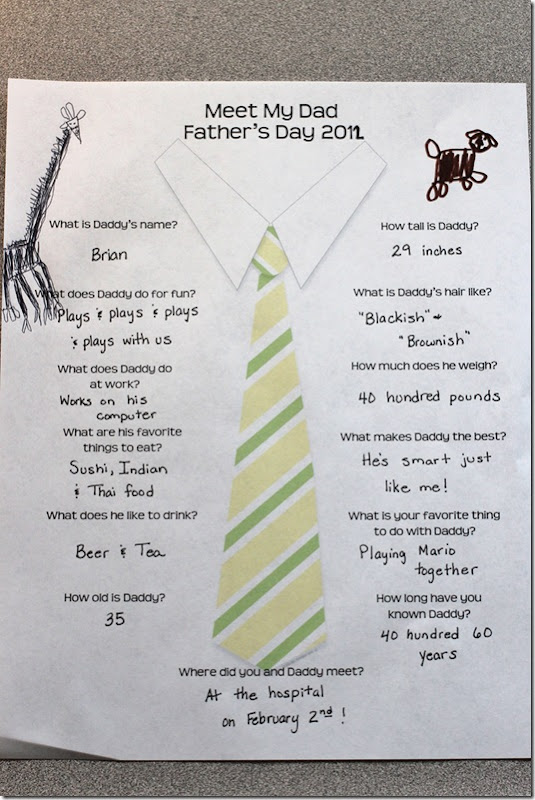 Meet My Dad
Father's Day 2012
What is Daddy's name?
Brian
What does Daddy do for fun?
Plays & plays & plays
& plays with us
What does Daddy do
at work?
Works on his
computer
What are his favorite
things to eat?
Sushi, Indian
& Thai food
What does he like to drink?
Beer & Tea
How old is Daddy?
35
How tall is Daddy?
29 inches
What is Daddy's hair like?
"Blackish" +
"Brownish"
How much does he weigh?
40 hundred pounds
What makes Daddy the best?
He's smart just
like me!
What is your favorite thing
to do with Daddy?
Playing Mario
together
How long have you
known Daddy?
40 hundred 60
years
Where did you and Daddy meet?
At the hospital
on February 2nd!